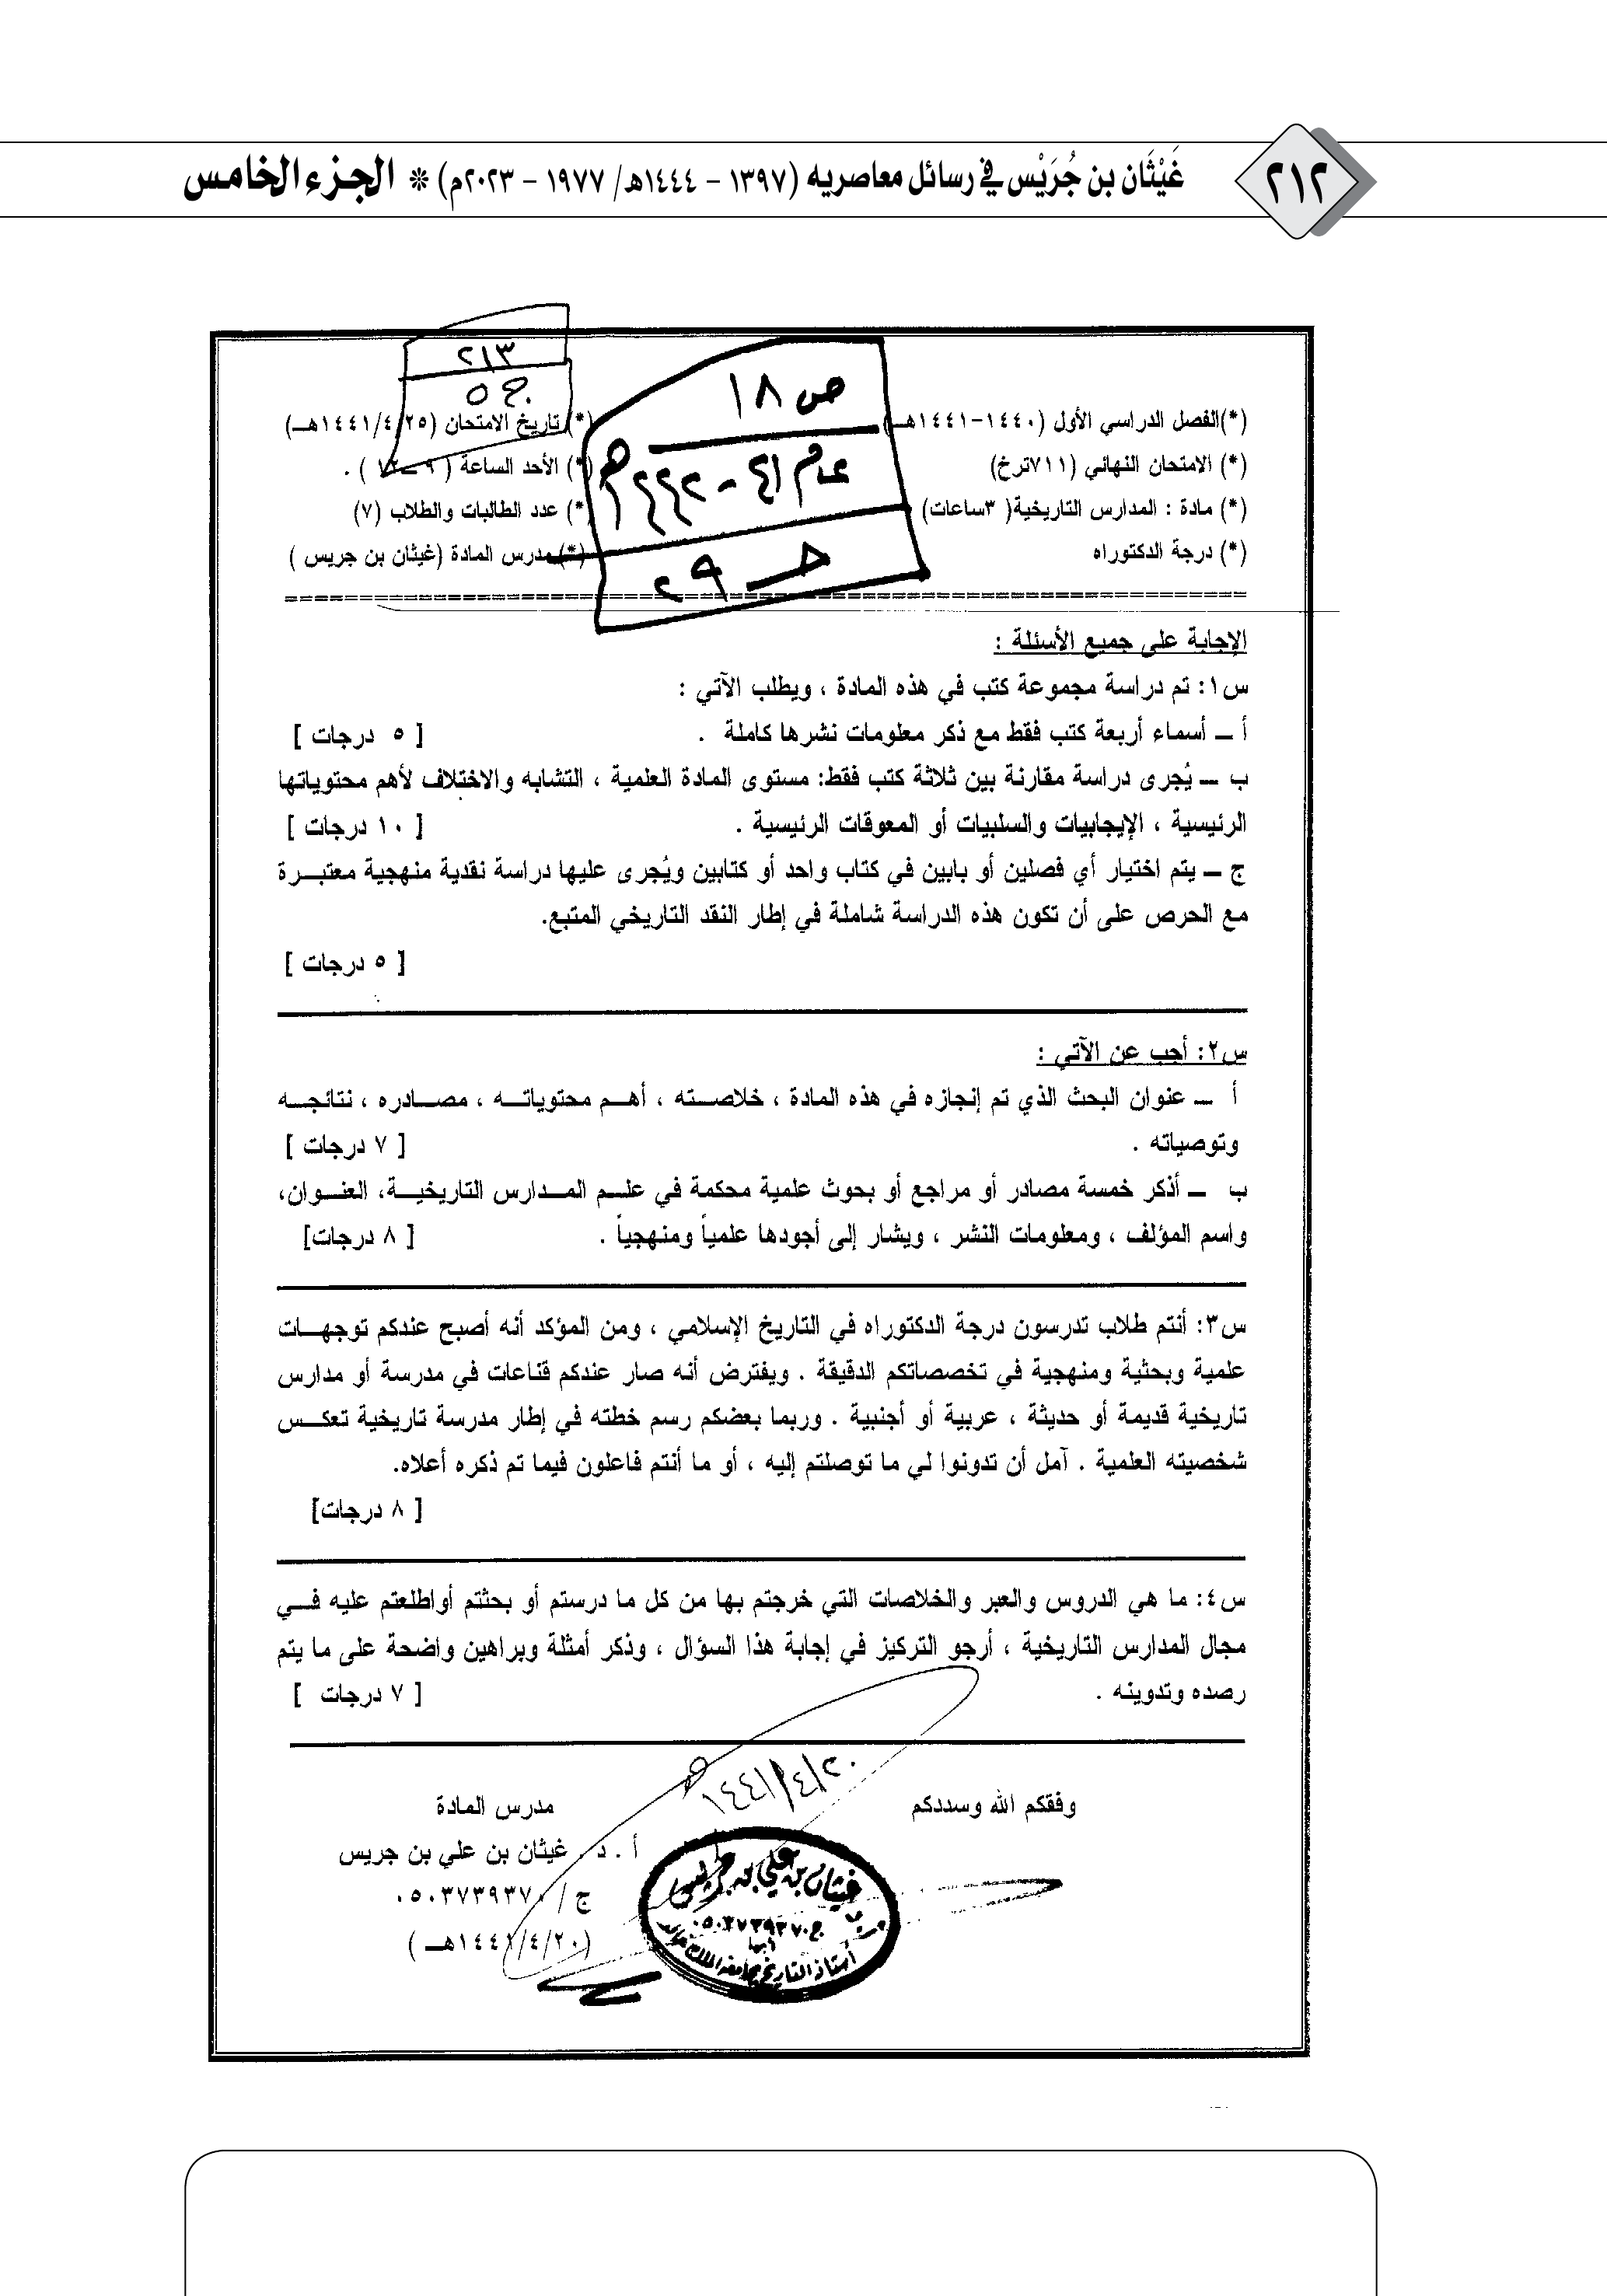 ٢١٢
غَيْثَان بن جُرَيْس في رسائل معاصريه (١٣٩٧ - ١٤٤٤هـ/ ١٩٧٧ - ٢٠٢٣م) * الجزء الخامس
٢١٣
ج ٥
ص ١٨
عام ٤١ - ١٤٤٢هـ
حـ ٢٩
(*) الفصل الدراسي الأول (١٤٤٠-١٤٤١هـ)
(*) تاريخ الامتحان (١٤٤١/٤/٢٥هـ)
(*) الامتحان النهائي (٧١١ترخ)
(*) الأحد الساعة ( ٩ – ١٢ ) .
(*) مادة : المدارس التاريخية( ٣ساعات)
(*) عدد الطالبات والطلاب (٧)
(*) درجة الدكتوراه
(*) مدرس المادة (غيثان بن جريس )
الإجابة على جميع الأسئلة :
س١: تم دراسة مجموعة كتب في هذه المادة ، ويطلب الآتي :
أ – أسماء أربعة كتب فقط مع ذكر معلومات نشرها كاملة . [ ٥ درجات ]
ب – يُجرى دراسة مقارنة بين ثلاثة كتب فقط: مستوى المادة العلمية ، التشابه والاختلاف لأهم محتوياتها
الرئيسية ، الإيجابيات والسلبيات أو المعوقات الرئيسية . [ ١٠ درجات ]
ج – يتم اختيار أي فصلين أو بابين في كتاب واحد أو كتابين ويُجرى عليها دراسة نقدية منهجية معتبرة
مع الحرص على أن تكون هذه الدراسة شاملة في إطار النقد التاريخي المتبع.
[ ٥ درجات ]
س٢: أجب عن الآتي :
أ – عنوان البحث الذي تم إنجازه في هذه المادة ، خلاصته ، أهم محتوياته ، مصادره ، نتائجه
وتوصياته . [ ٧ درجات ]
ب – أذكر خمسة مصادر أو مراجع أو بحوث علمية محكمة في علم المدارس التاريخية، العنوان،
واسم المؤلف ، ومعلومات النشر ، ويشار إلى أجودها علمياً ومنهجياً . [ ٨ درجات]
س٣: أنتم طلاب تدرسون درجة الدكتوراه في التاريخ الإسلامي ، ومن المؤكد أنه أصبح عندكم توجهات
علمية وبحثية ومنهجية في تخصصاتكم الدقيقة . ويفترض أنه صار عندكم قناعات في مدرسة أو مدارس
تاريخية قديمة أو حديثة ، عربية أو أجنبية . وربما بعضكم رسم خطته في إطار مدرسة تاريخية تعكس
شخصيته العلمية . آمل أن تدونوا لي ما توصلتم إليه ، أو ما أنتم فاعلون فيما تم ذكره أعلاه.
[ ٨ درجات]
س٤: ما هي الدروس والعبر والخلاصات التي خرجتم بها من كل ما درستم أو بحثتم أواطلعتم عليه في
مجال المدارس التاريخية ، أرجو التركيز في إجابة هذا السؤال ، وذكر أمثلة وبراهين واضحة على ما يتم
رصده وتدوينه . [ ٧ درجات ]
١٤٤١/٤/٢٠هـ
وفقكم الله وسددكم
مدرس المادة
أ . د . غيثان بن علي بن جريس
ج / ٠٥٠٣٧٣٩٣٧٠
(١٤٤١/٤/٢٠هـ )
غيثان بن علي بن جريس
ج ٠٥٠٣٧٣٩٣٧٠
أبها
أستاذ التاريخ بجامعة الملك خالد